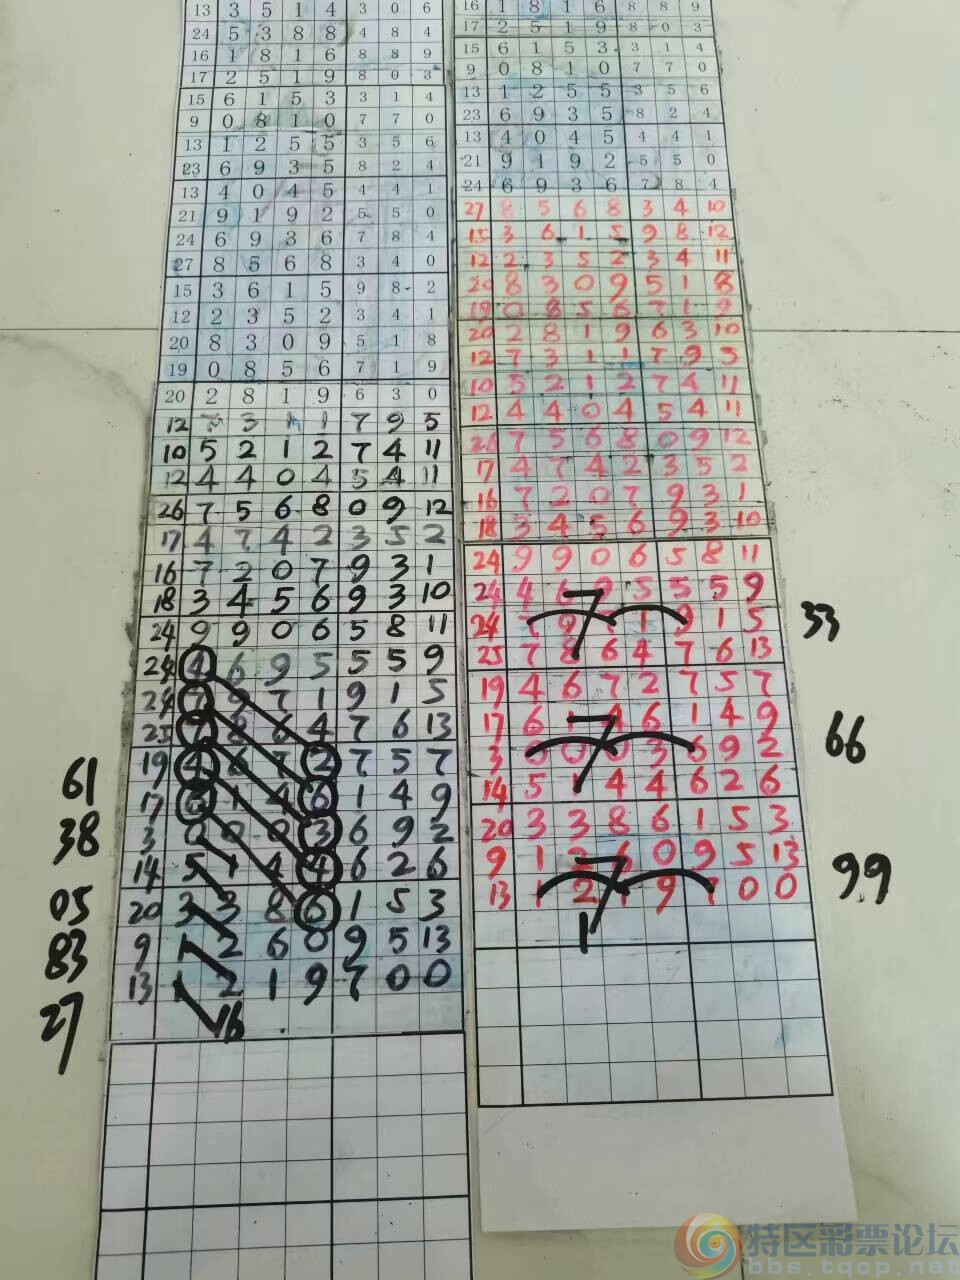 13 3 5 1 4 3 0 6
24 5 3 8 8 4 8 4
16 1 8 1 6 8 8 9
17 2 5 1 9 8 0 3
15 6 1 5 3 3 1 4
9 0 8 1 0 7 7 0
13 1 2 5 5 3 5 6
23 6 9 3 5 8 2 4
13 4 0 4 5 4 4 1
21 9 1 9 2 5 5 0
24 6 9 3 6 7 8 4
27 8 5 6 8 3 4 0
15 3 6 1 5 9 8 2
12 2 3 5 2 3 4 1
20 8 3 0 9 5 1 8
19 0 8 5 6 7 1 9
20 2 8 1 9 6 3 0
12 7 3 1 1 7 9 5
10 5 2 1 2 7 4 11
12 4 4 0 4 5 4 11
26 7 5 6 8 0 9 12
17 4 7 4 2 3 5 2
16 7 2 0 7 9 3 1
18 3 4 5 6 9 3 10
24 9 9 0 6 5 8 11
24 4 6 9 5 5 5 9
24 7 9 7 1 9 1 5
25 7 8 6 4 7 6 13
19 4 6 7 2 7 5 7
61 17 6 1 4 6 1 4 9
38 3 0 0 0 3 6 9 2
14 5 1 4 4 6 2 6
05 20 3 3 8 6 1 5 3
83 9 1 2 6 0 9 5 13
13 1 2 1 9 7 0 0
27 16
16 1 8 1 6 8 8 9
17 2 5 1 9 8 0 3
15 6 1 5 3 3 1 4
9 0 8 1 0 7 7 0
13 1 2 5 5 3 5 6
23 6 9 3 5 8 2 4
13 4 0 4 5 4 4 1
21 9 1 9 2 5 5 0
24 6 9 3 6 7 8 4
27 8 5 6 8 3 4 10
15 3 6 1 5 9 8 12
12 2 3 5 2 3 4 11
20 8 3 0 9 5 1 8
19 0 8 5 6 7 1 9
20 2 8 1 9 6 3 10
12 7 3 1 1 7 9 5
10 5 2 1 2 7 4 11
12 4 4 0 4 5 4 11
26 7 5 6 8 0 9 12
17 4 7 4 2 3 5 2
16 7 2 0 7 9 3 1
18 3 4 5 6 9 3 10
24 9 9 0 6 5 8 11
24 4 6 9 5 5 5 9
24 7 9 7 1 9 1 5 33
25 7 8 6 4 7 6 13
19 4 6 7 2 7 5 7
17 6 1 4 6 1 4 9 66
3 0 0 0 3 6 9 2
14 5 1 4 4 6 2 6
20 3 3 8 6 1 5 3
9 1 2 6 0 9 5 13 99
13 1 2 1 9 7 0 0
1
特区彩票论坛
bbs.tqcp.net